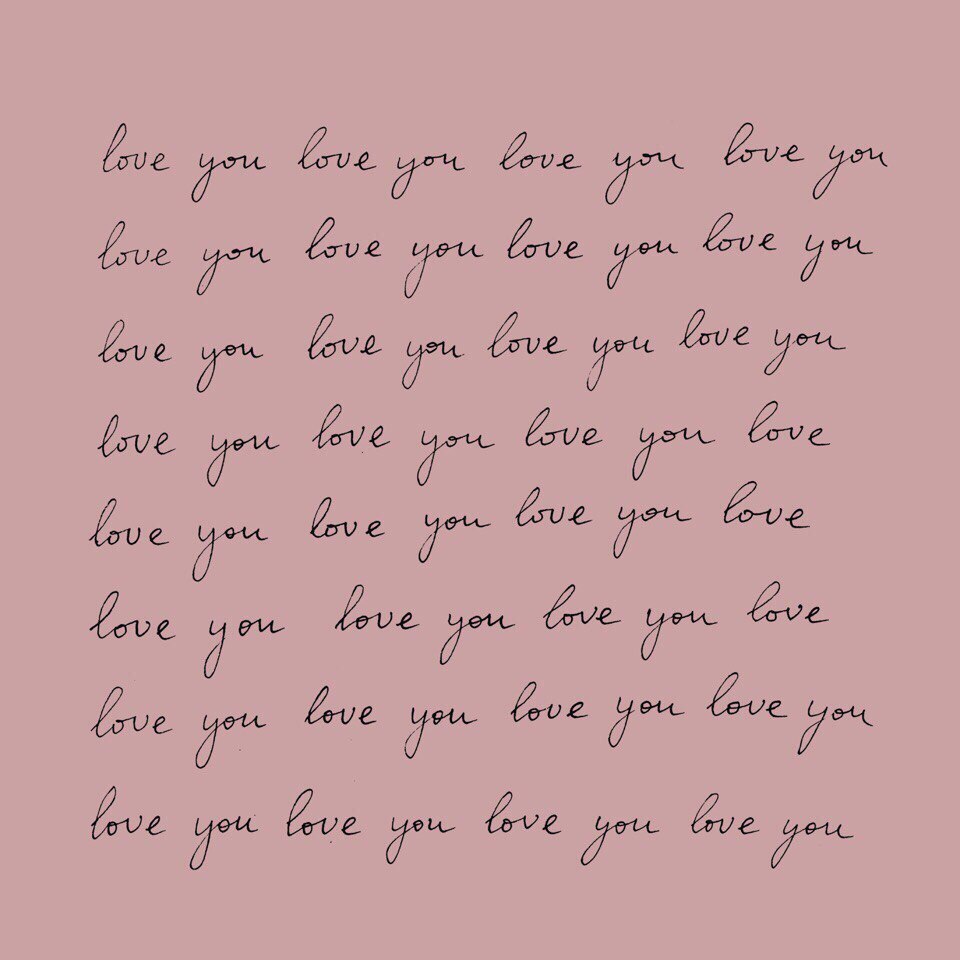 love you love you love you love you
love you love you love you love you
love you love you love you love you
love you love you love you love
love you love you love you love
love you love you love you love
love you love you love you love you
love you love you love you love you